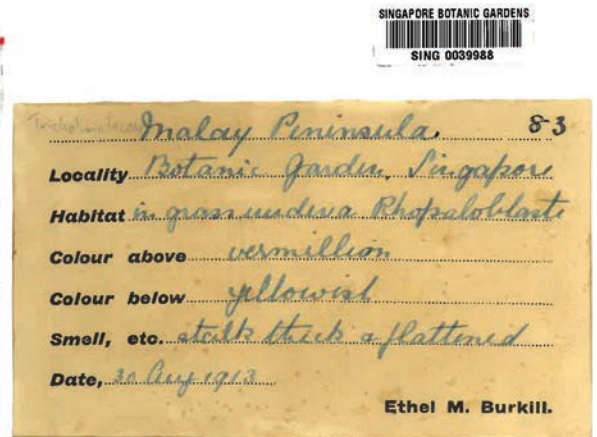 SINGAPORE BOTANIC GARDENS
SING 0039988
Malay Peninsula. 83
Locality Botanic Garden, Singapore
Habitat in grass under a Rhopaloblaste
Colour above vermillion
Colour below yellowish
Smell, etc. stalk thick & flattened
Date, 30 Aug 1913
Ethel M. Burkill.